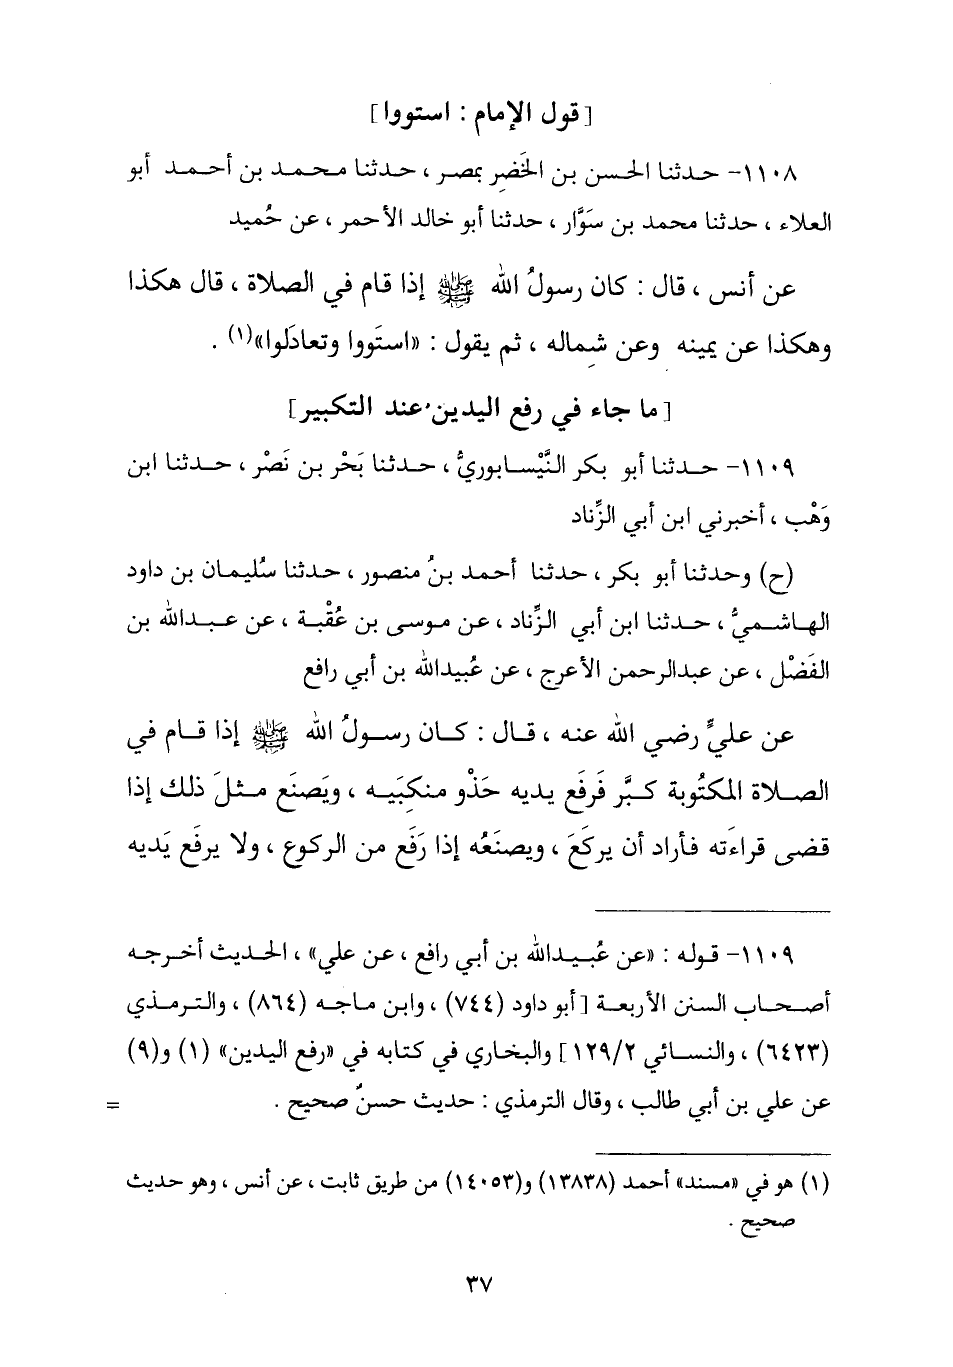 [قول الإمام : استووا]
١١٠٨- حـدثنا الحسن بن الخَضِر بمصر ، حـدثنا محمد بن أحمد أبو
العلاء ، حدثنا محمد بن سَوَّار ، حدثنا أبو خالد الأحمر ، عن حُميد
عن أنس ، قال : كان رسولُ الله ﷺ إذا قام في الصلاة ، قال هكذا
وهكذا عن يمينه وعن شِماله ، ثم يقول : «استَووا وتعادَلوا»(١) .
[ما جاء في رفع اليدين عند التكبير]
١١٠٩- حـدثنا أبو بكر النَّيْسابوريُّ ، حـدثنا بَحْر بن نَصْر ، حـدثنا ابن
وَهْب ، أخبرني ابن أبي الزِّناد
(ح) وحدثنا أبو بكر ، حدثنا أحمد بنُ منصور ، حدثنا سُليمان بن داود
الهاشميُّ ، حدثنا ابن أبي الزِّناد ، عن موسى بن عُقْبة ، عن عبدالله بن
الفَضْل ، عن عبدالرحمن الأعرج ، عن عُبيدالله بن أبي رافع
عن عليٍّ رضي الله عنه ، قـال : كـان رسـولُ الله ﷺ إذا قـام في
الصـلاة المكتُوبة كبَّر فَرفَع يديه حَذْو منكِبَيه ، ويَصنَع مثلَ ذلك إذا
قضى قراءَته فأراد أن يركَعَ ، ويصنَعُه إذا رَفَع من الركوع ، ولا يرفَع يَديه
١١٠٩- قوله : «عن عُبيدالله بن أبي رافع ، عن علي» ، الحديث أخرجه
أصحاب السنن الأربعة [أبو داود (٧٤٤) ، وابن ماجه (٨٦٤) ، والترمذي
(٦٤٢٣) ، والنسائي ١٢٩/٢] والبخاري في كتابه في «رفع اليدين» (١) و(٩)
عن علي بن أبي طالب ، وقال الترمذي : حديث حسنٌ صحيح .
=
(١) هو في «مسند» أحمد (١٣٨٣٨) و(١٤٠٥٣) من طريق ثابت ، عن أنس ، وهو حديث
صحيح .
٣٧